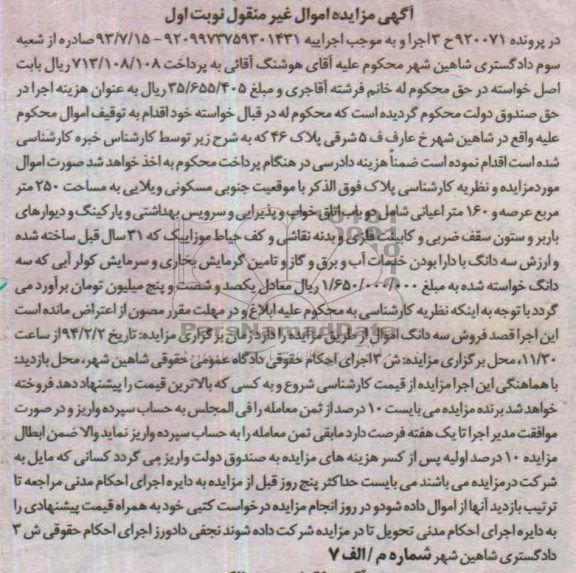 آگهی مزایده اموال غیر منقول نوبت اول
در پرونده ۹۲۰۰۷۱ ح ۳ اجرا و به موجب اجراییه ۹۲۰۹۹۷۳۷۵۹۳۰۱۴۳۱ - ۹۳/۷/۱۵ صادره از شعبه
سوم دادگستری شاهین شهر محکوم علیه آقای هوشنگ آقائی به پرداخت ۷۱۳/۱۰۸/۱۰۸ ریال بابت
اصل خواسته در حق محکوم له خانم فرشته آقاجری و مبلغ ۳۵/۶۵۵/۴۰۵ ریال به عنوان هزینه اجرا در
حق صندوق دولت محکوم گردیده است که محکوم له در قبال خواسته خود اقدام به توقیف اموال محکوم
علیه واقع در شاهین شهر خ عارف ف ۵ شرقی پلاک ۴۶ که به شرح زیر توسط کارشناس خبره کارشناسی
شده است اقدام نموده است ضمناً هزینه دادرسی در هنگام پرداخت محکوم به اخذ خواهد شد صورت اموال
مورد مزایده و نظریه کارشناسی پلاک فوق الذکر با موقعیت جنوبی مسکونی ویلایی به مساحت ۲۵۰ متر
مربع عرصه و ۱۶۰ متر اعیانی شامل دو باب اتاق خواب و پذیرایی و سرویس بهداشتی و پارکینگ و دیوارهای
باربر و ستون سقف ضربی و کابینت فلزی و بدنه نقاشی و کف حیاط موزاییک که ۳۱ سال قبل ساخته شده
و ارزش سه دانگ با دارا بودن خدمات آب و برق و گاز و تامین گرمایش بخاری و سرمایش کولر آبی که سه
دانگ خواسته شده به مبلغ ۱/۶۵۰/۰۰۰/۰۰۰ ریال معادل یکصد و شصت و پنج میلیون تومان برآورد می
گردد با توجه به اینکه نظریه کارشناسی به محکوم علیه ابلاغ و در مهلت مقرر مصون از اعتراض مانده است
این اجرا قصد فروش سه دانگ اموال از طریق مزایده را دارد زمان برگزاری مزایده: تاریخ ۹۴/۲/۲ از ساعت
۱۱/۳۰، محل برگزاری مزایده: ش ۳ اجرای احکام حقوقی دادگاه عمومی حقوقی شاهین شهر، محل بازدید:
با هماهنگی این اجرا مزایده از قیمت کارشناسی شروع و به کسی که بالاترین قیمت را پیشنهاد دهد فروخته
خواهد شد برنده مزایده می بایست ۱۰ درصد از ثمن معامله را فی المجلس به حساب سپرده واریز و در صورت
موافقت مدیر اجرا تا یک هفته فرصت دارد مابقی ثمن معامله را به حساب سپرده واریز نماید والا ضمن ابطال
مزایده ۱۰ درصد اولیه پس از کسر هزینه های مزایده به صندوق دولت واریز می گردد کسانی که مایل به
شرکت در مزایده می باشند می بایست حداکثر پنج روز قبل از مزایده به دایره اجرای احکام مدنی مراجعه تا
ترتیب بازدید آنها از اموال داده شود و در روز انجام مزایده درخواست کتبی خود به همراه قیمت پیشنهادی را
به دایره اجرای احکام مدنی تحویل تا در مزایده شرکت داده شوند نجفی دادورز اجرای احکام حقوقی ش ۳
دادگستری شاهین شهر شماره م / الف ۷